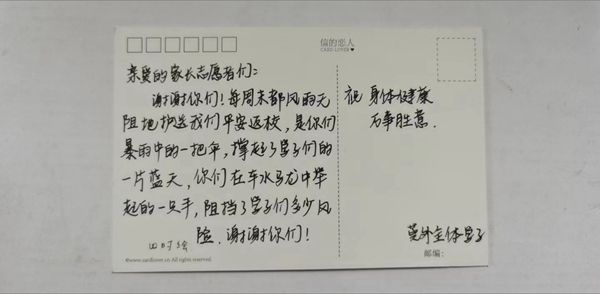 信的恋人
CARD LOVER
亲爱的家长志愿者们:
谢谢你们!每周末都风雨无
阻地护送我们平安返校,是你们
暴雨中的一把伞,撑起了学子们的
一片蓝天,你们在车水马龙中举
起的一只手,阻挡了学子们多少风
险.谢谢你们!
四时绘
©www.cardlover.cn All rights reserved.
祝 身体健康
万事胜意.
莞外全体学子
邮编: